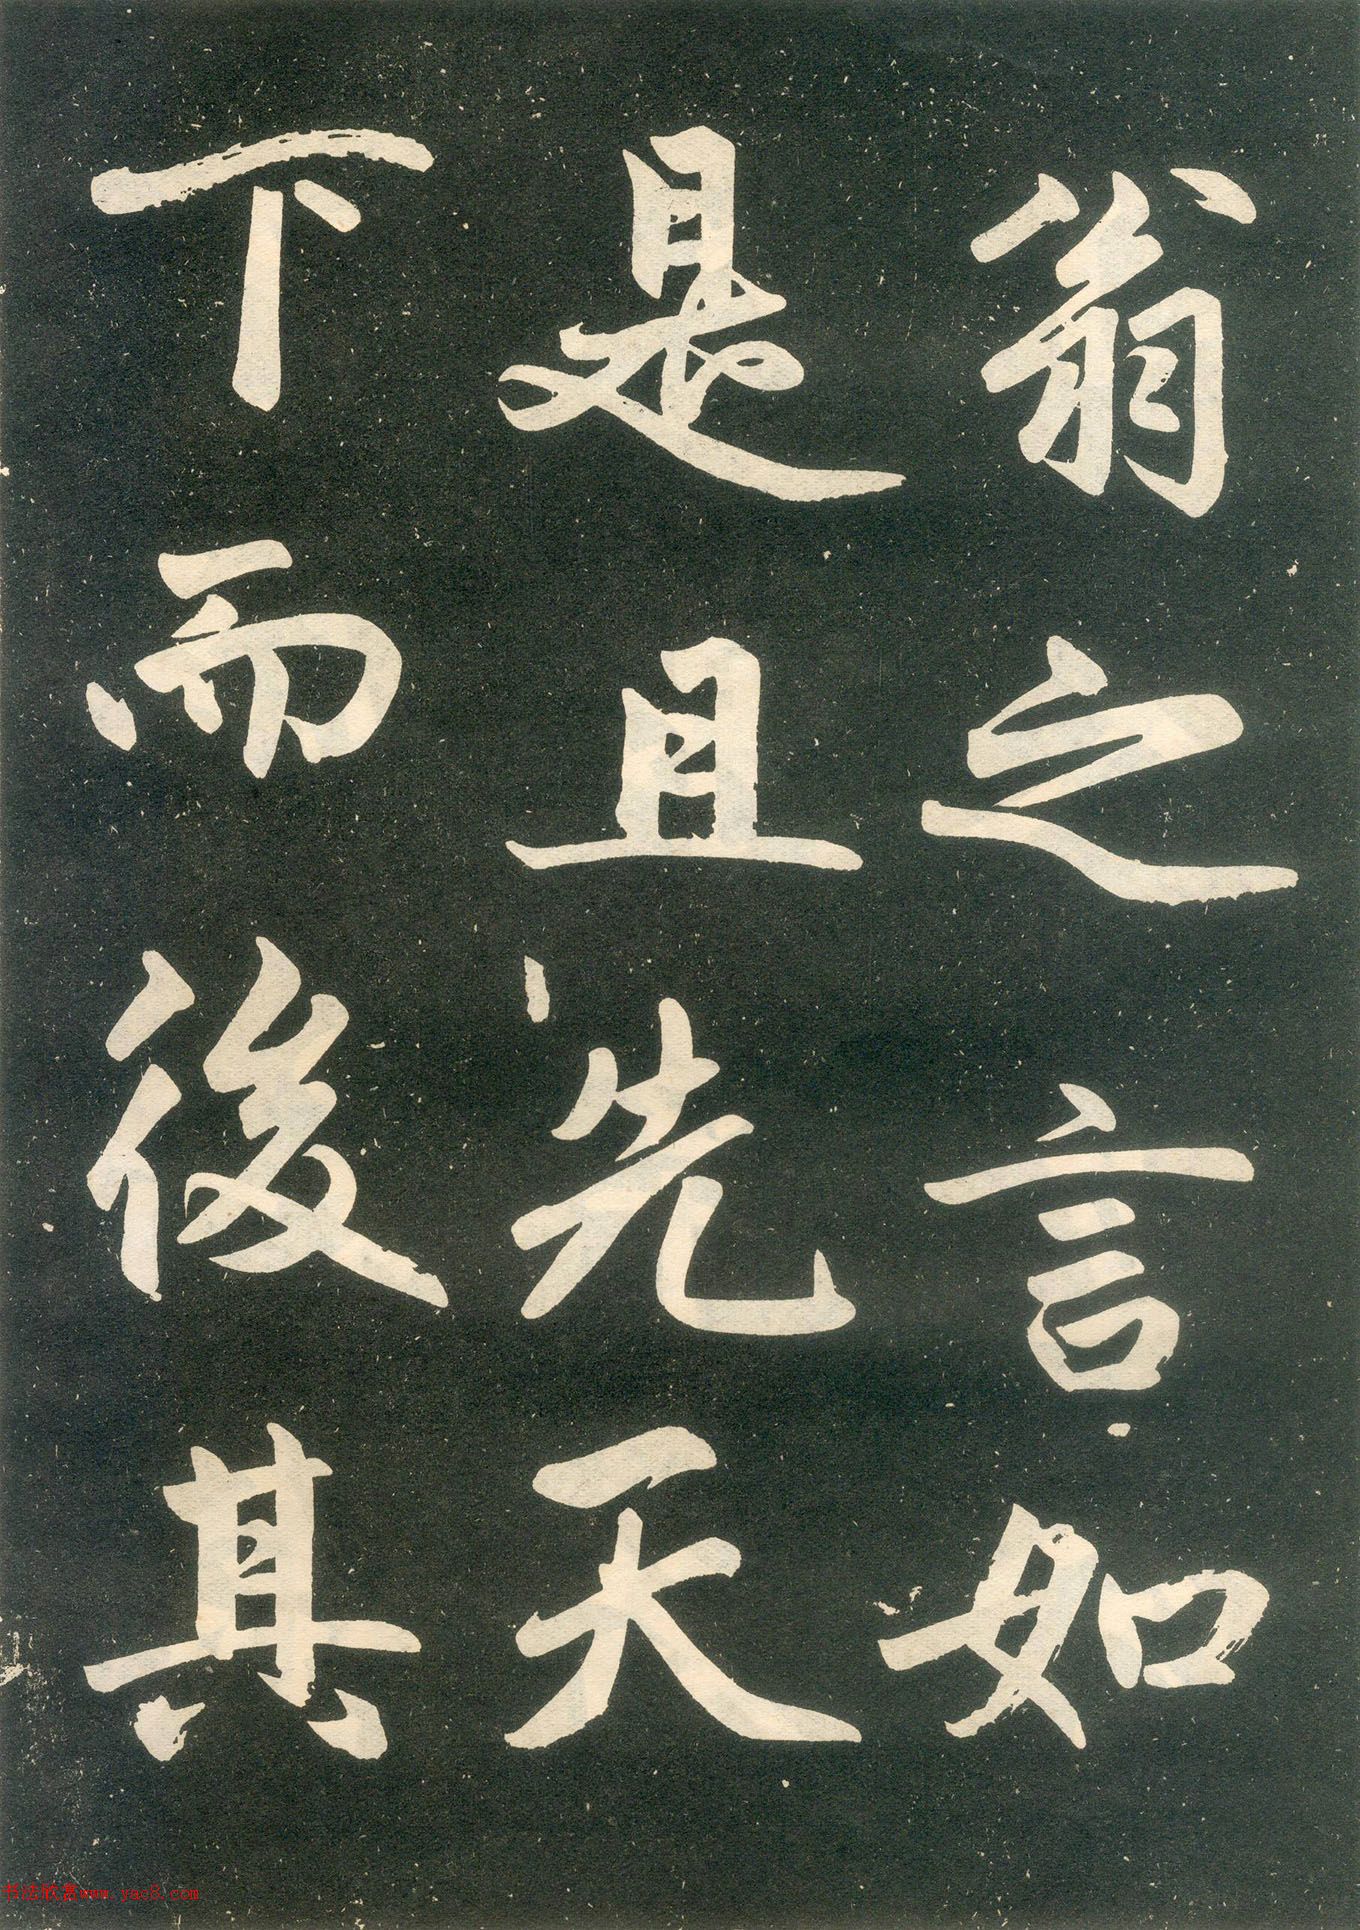 翁之言如
是且先天
下而後其
书法欣赏www.yac8.com